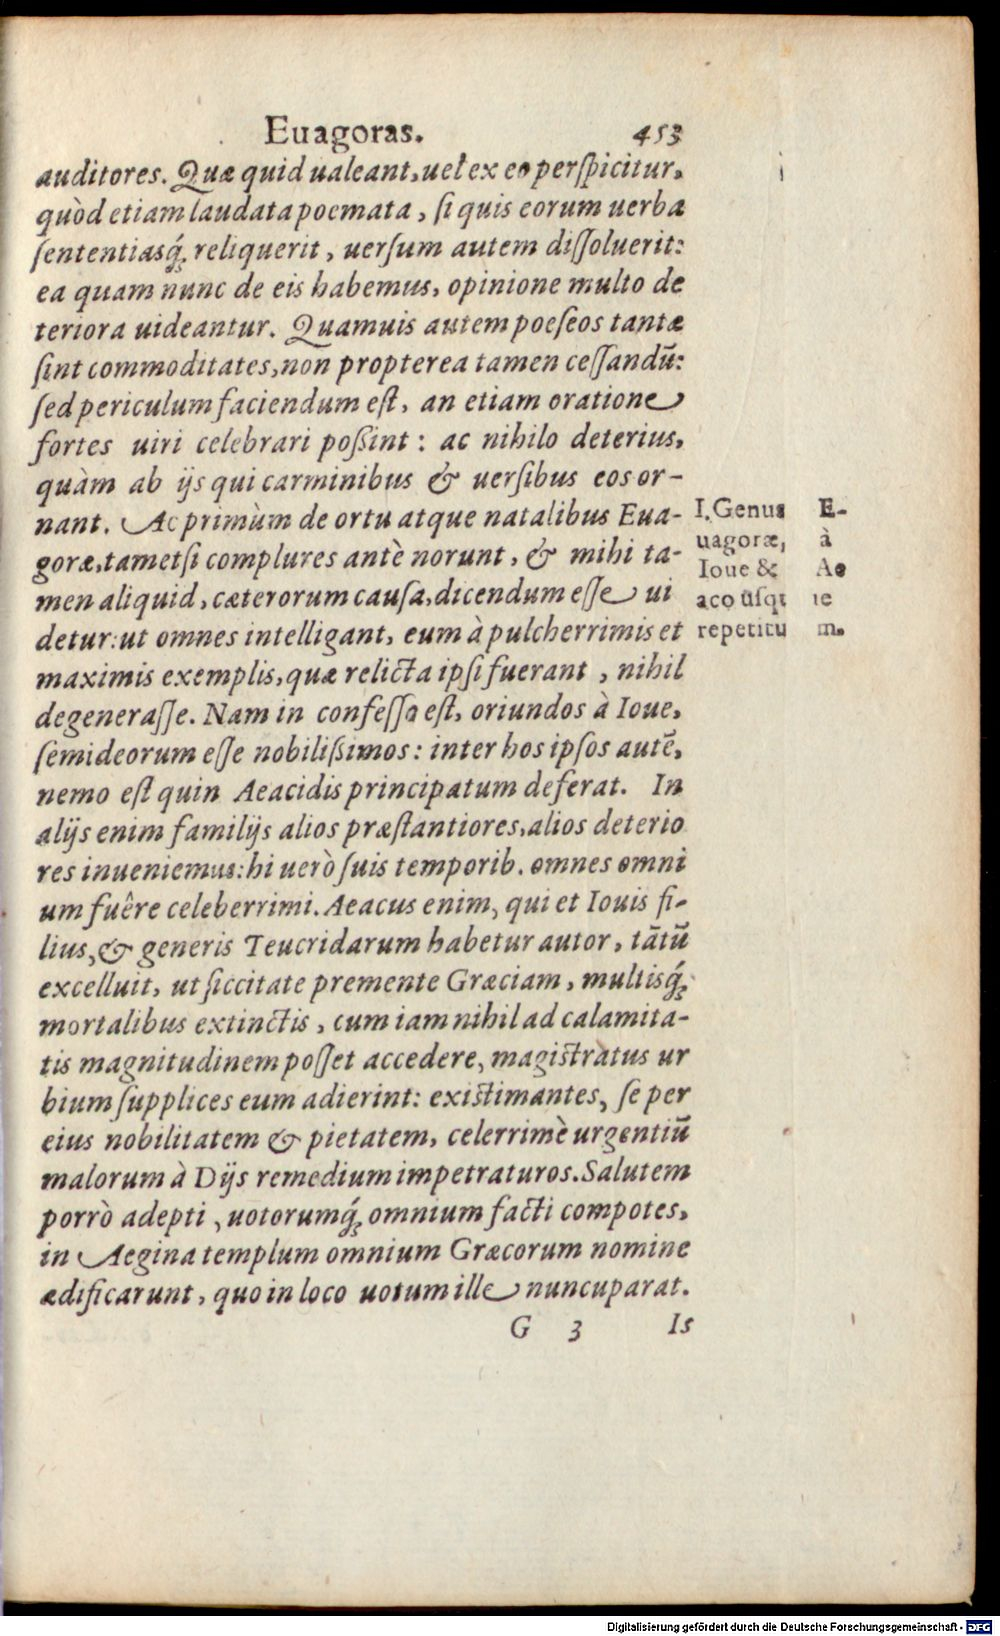 Euagoras. 453
auditores. Quæ quid ualeant, uel ex eo perſpicitur,
quòd etiam laudata poemata, ſi quis eorum uerba
ſententiasq́; reliquerit, uerſum autem diſſoluerit:
ea quam nunc de eis habemus, opinione multo de
teriora uideantur. Quamuis autem poeſeos tantæ
ſint commoditates, non propterea tamen ceſſandū:
ſed periculum faciendum eſt, an etiam oratione
fortes uiri celebrari poßint: ac nihilo deterius,
quàm ab ijs qui carminibus & uerſibus eos or-
nant. Ac primùm de ortu atque natalibus Eua-
goræ, tametſi complures antè norunt, & mihi ta-
men aliquid, cæterorum cauſa, dicendum eſſe ui
detur: ut omnes intelligant, eum à pulcherrimis et
maximis exemplis, quæ relicta ipſi fuerant, nihil
degeneraſſe. Nam in confeſſo eſt, oriundos à Ioue,
ſemideorum eſſe nobilißimos: inter hos ipſos autē,
nemo eſt quin Aeacidis principatum deferat. In
alijs enim familijs alios præſtantiores, alios deterio
res inueniemus: hi uerò ſuis temporib. omnes omni
um fuêre celeberrimi. Aeacus enim, qui et Iouis fi-
lius, & generis Teucridarum habetur autor, tātū
excelluit, ut ſiccitate premente Græciam, multisq́;
mortalibus extinctis, cum iam nihil ad calamita-
tis magnitudinem poſſet accedere, magiſtratus ur
bium ſupplices eum adierint: exiſtimantes, ſe per
eius nobilitatem & pietatem, celerrimè urgentiū
malorum à Dijs remedium impetraturos. Salutem
porrò adepti, uotorumq́; omnium facti compotes,
in Aegina templum omnium Græcorum nomine
ædificarunt, quo in loco uotum ille nuncuparat.
G 3 Is
I. Genus E-
uagoræ, à
Ioue & Ae
aco uſque
repetitum.
Digitalisierung gefördert durch die Deutsche Forschungsgemeinschaft - DFG